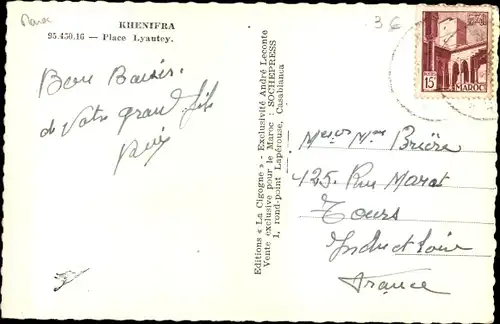 Maroc
KHENIFRA
95.450.16 — Place Lyautey.
36
Bons Baisers
de Votre grand fils
Editions « La Cigogne » - Exclusivité André Leconte
Vente exclusive pour le Maroc : SOCHEPRESS
1, rond-point Lapérouse, Casablanca
15F
MAROC
Mr et Mme Brière
425, Rue Marat
Tours
Indre et Loire
France